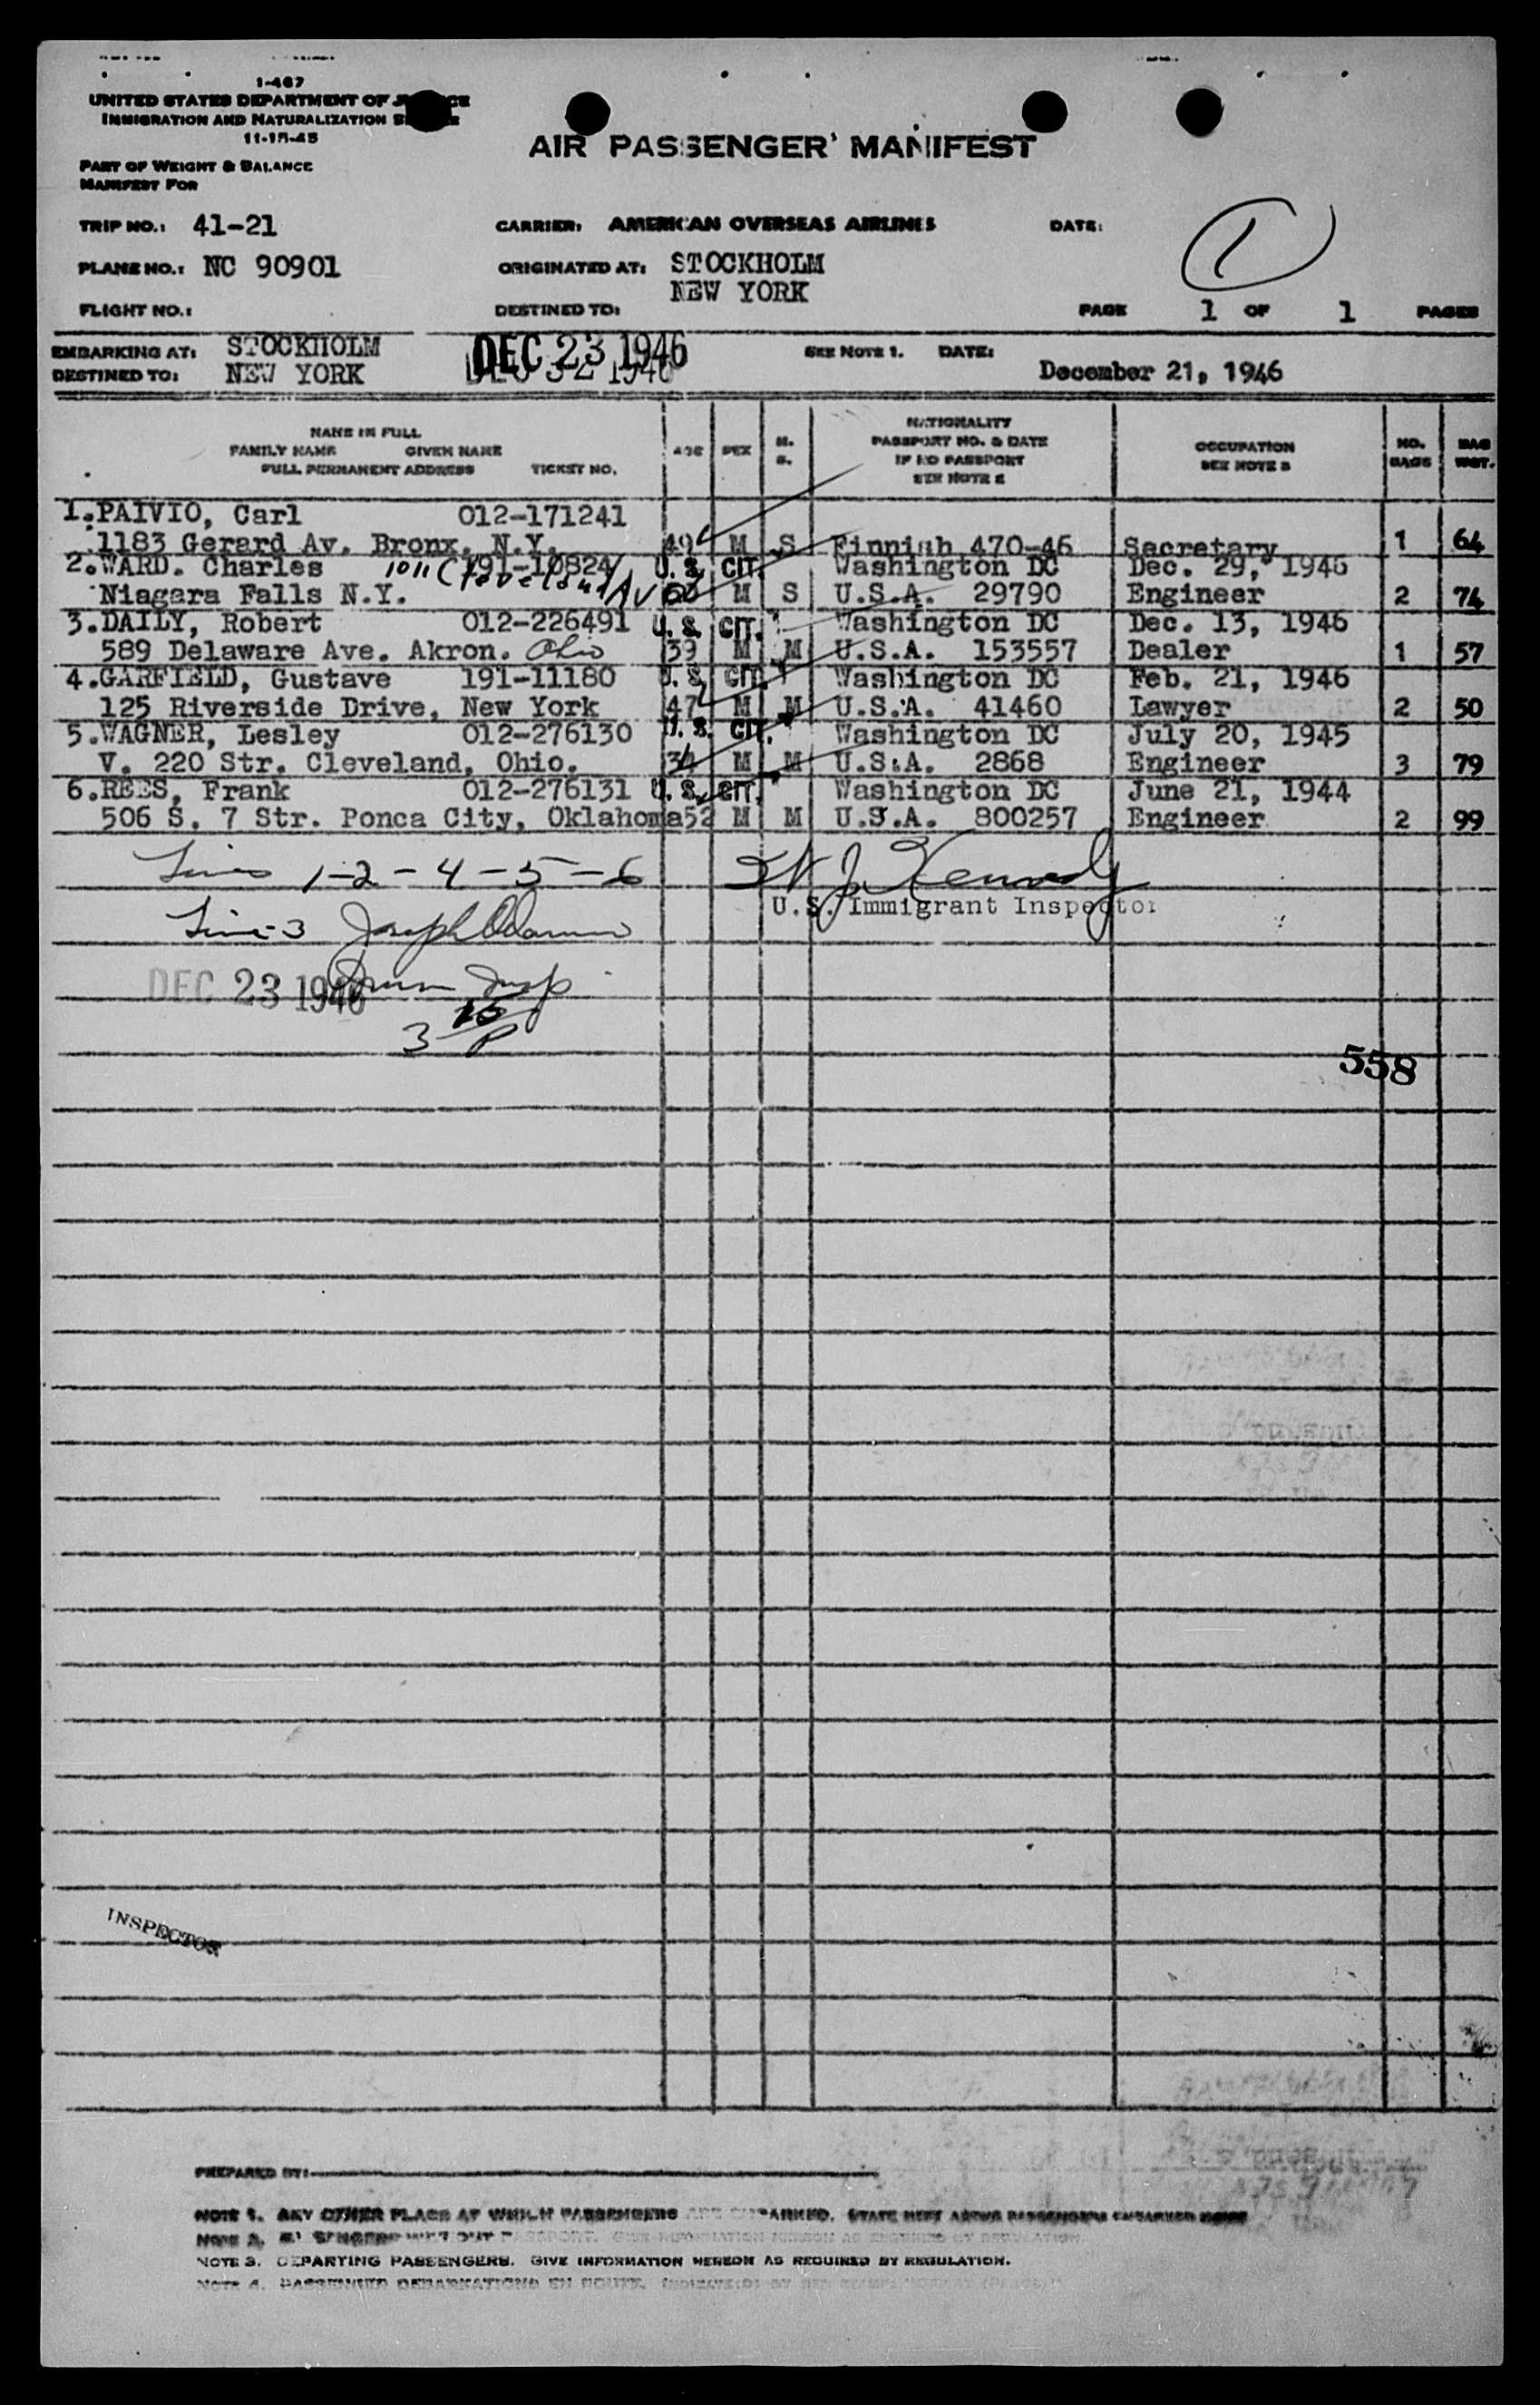 1-467
UNITED STATES DEPARTMENT OF
IMMIGRATION AND NATURALIZATION
11-15-45
AIR PASSENGER MANIFEST
PART OF WEIGHT & BALANCE
MANIFEST FOR
TRIP NO.: 41-21 CARRIER: AMERICAN OVERSEAS AIRLINES DATE: 1
PLANE NO.: NC 90901 ORIGINATED AT: STOCKHOLM
NEW YORK
FLIGHT NO.: DESTINED TO: PAGE 1 OF 1 PAGES
EMBARKING AT: STOCKHOLM DEC 23 1946 SEE NOTE 1. DATE:
DESTINED TO: NEW YORK December 21, 1946
NAME IN FULL
FAMILY NAME GIVEN NAME
FULL PERMANENT ADDRESS TICKET NO.
AGE SEX M. S.
NATIONALITY
PASSPORT NO. & DATE
IF NO PASSPORT
SEE NOTE 2
OCCUPATION
SEE NOTE 3
NO. BAGS
BAG WGT.
1.PAIVIO, Carl 012-171241
1183 Gerard Av. Bronx, N.Y. 49 M S Finnish 470-46 Secretary 1 64
2.WARD. Charles 1011 Cleveland Av 191-10824 U.S. CIT. Washington DC Dec. 29, 1946
Niagara Falls N.Y. M S U.S.A. 29790 Engineer 2 74
3.DAILY, Robert 012-226491 U.S. CIT. Washington DC Dec. 13, 1946
589 Delaware Ave. Akron. Ohio 39 M M U.S.A. 153557 Dealer 1 57
4.GARFIELD, Gustave 191-11180 U.S. CIT. Washington DC Feb. 21, 1946
125 Riverside Drive, New York 47 M M U.S.A. 41460 Lawyer 2 50
5.WAGNER, Lesley 012-276130 U.S. CIT. Washington DC July 20, 1945
V. 220 Str. Cleveland, Ohio. 34 M M U.S.A. 2868 Engineer 3 79
6.REES, Frank 012-276131 U.S. CIT. Washington DC June 21, 1944
506 S. 7 Str. Ponca City, Oklahoma 52 M M U.S.A. 800257 Engineer 2 99
Lines 1-2-4-5-6 Kennedy
U.S. Immigrant Inspector
Line-3 Joseph
DEC 23 1946 Imm Insp
3 15 P
558
INSPECTOR
PREPARED BY:
NOTE 1. ANY OTHER PLACE AT WHICH PASSENGERS ARE EMBARKED. STATE NEXT ABOVE PASSENGERS EMBARKED
NOTE 2.
NOTE 3. DEPARTING PASSENGERS. GIVE INFORMATION HEREON AS REQUIRED BY REGULATION.
NOTE 4. PASSENGER DEBARKATIONS EN ROUTE.